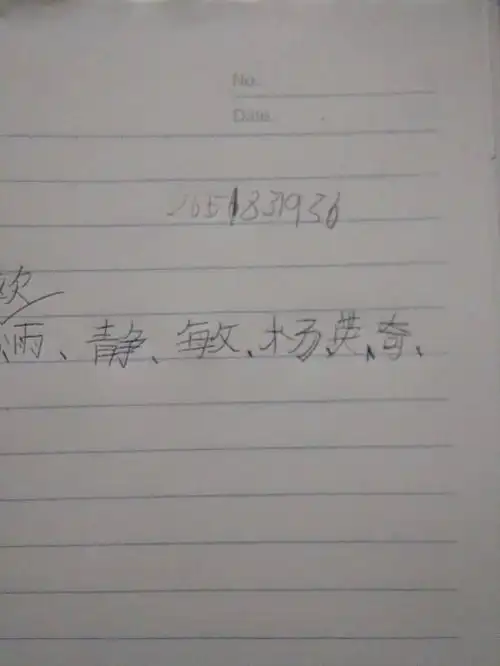 No.
Date.
2651831936
欢
雨、静、敏、杨、英、奇、